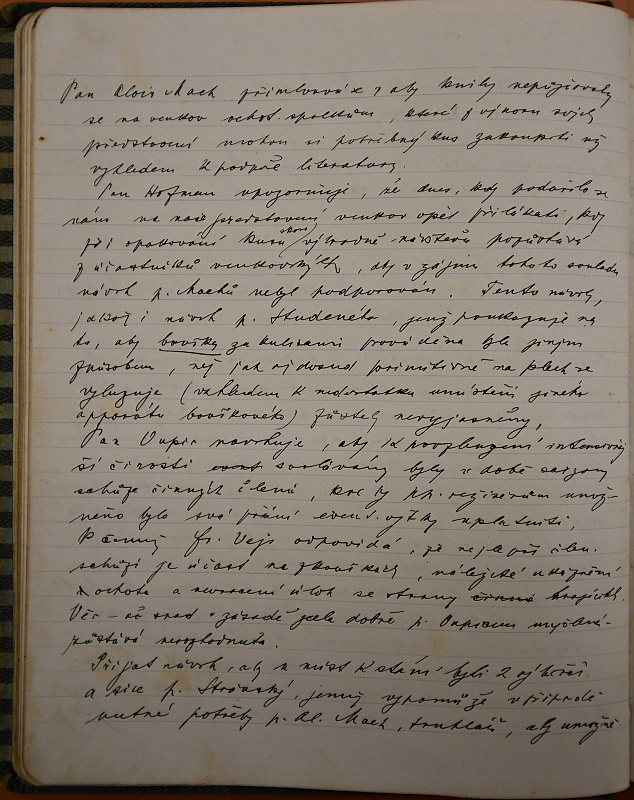 Pan Alois Mach přimlouvá se, aby knihy nepůjčovaly
se na venkov ochot. spolkům, které v výnosu svých
představení mohou si potřebný kus zakoupiti už
vzhledem k podpoře literatury.
Pan Hofman upozorňuje, že dnes, kdy podařilo se
nám na naše představení venkov opět přilákati, kdy
při opakování kusu skoro výhradně návštěva pozůstává
z účastníků venkovských, aby v zájmu tohoto souladu
návrh p. Macha nebyl podporován. Tento návrh,
jakož i návrh p. Studeného, jenž poukazuje na
to, aby bouřky za kulisami prováděna byla jiným
způsobem, než jak se dosud primitivně na plech se
vyluzuje (vzhledem k nedostatku umístění jiného
apparátu bouřkového) zůstaly nevyjasněny.
Pan Vapic navrhuje, aby ku povzbuzení intensivněj
ší činosti svolávány byly v době saisony
schůze činných členů, kde by pp. režisérům umož-
něno bylo svá přání event. výtky uplatniti.
P. Fr. Vejs odpovídá, že nejlepší člen.
schůzí je účast na zkouškách, náležité
ochota a nevracení úloh se strany hrajících.
Věc – ač snad v zásadě zcela dobře p. myšlená –
zůstává nerozhodnuta.
Přijat návrh, aby u míst k stání byli 2 výběrčí
a sice p. Stránský, jemuž vypomůže v případě
nutné potřeby p. Al. Mach, truhlář, aby umožně-